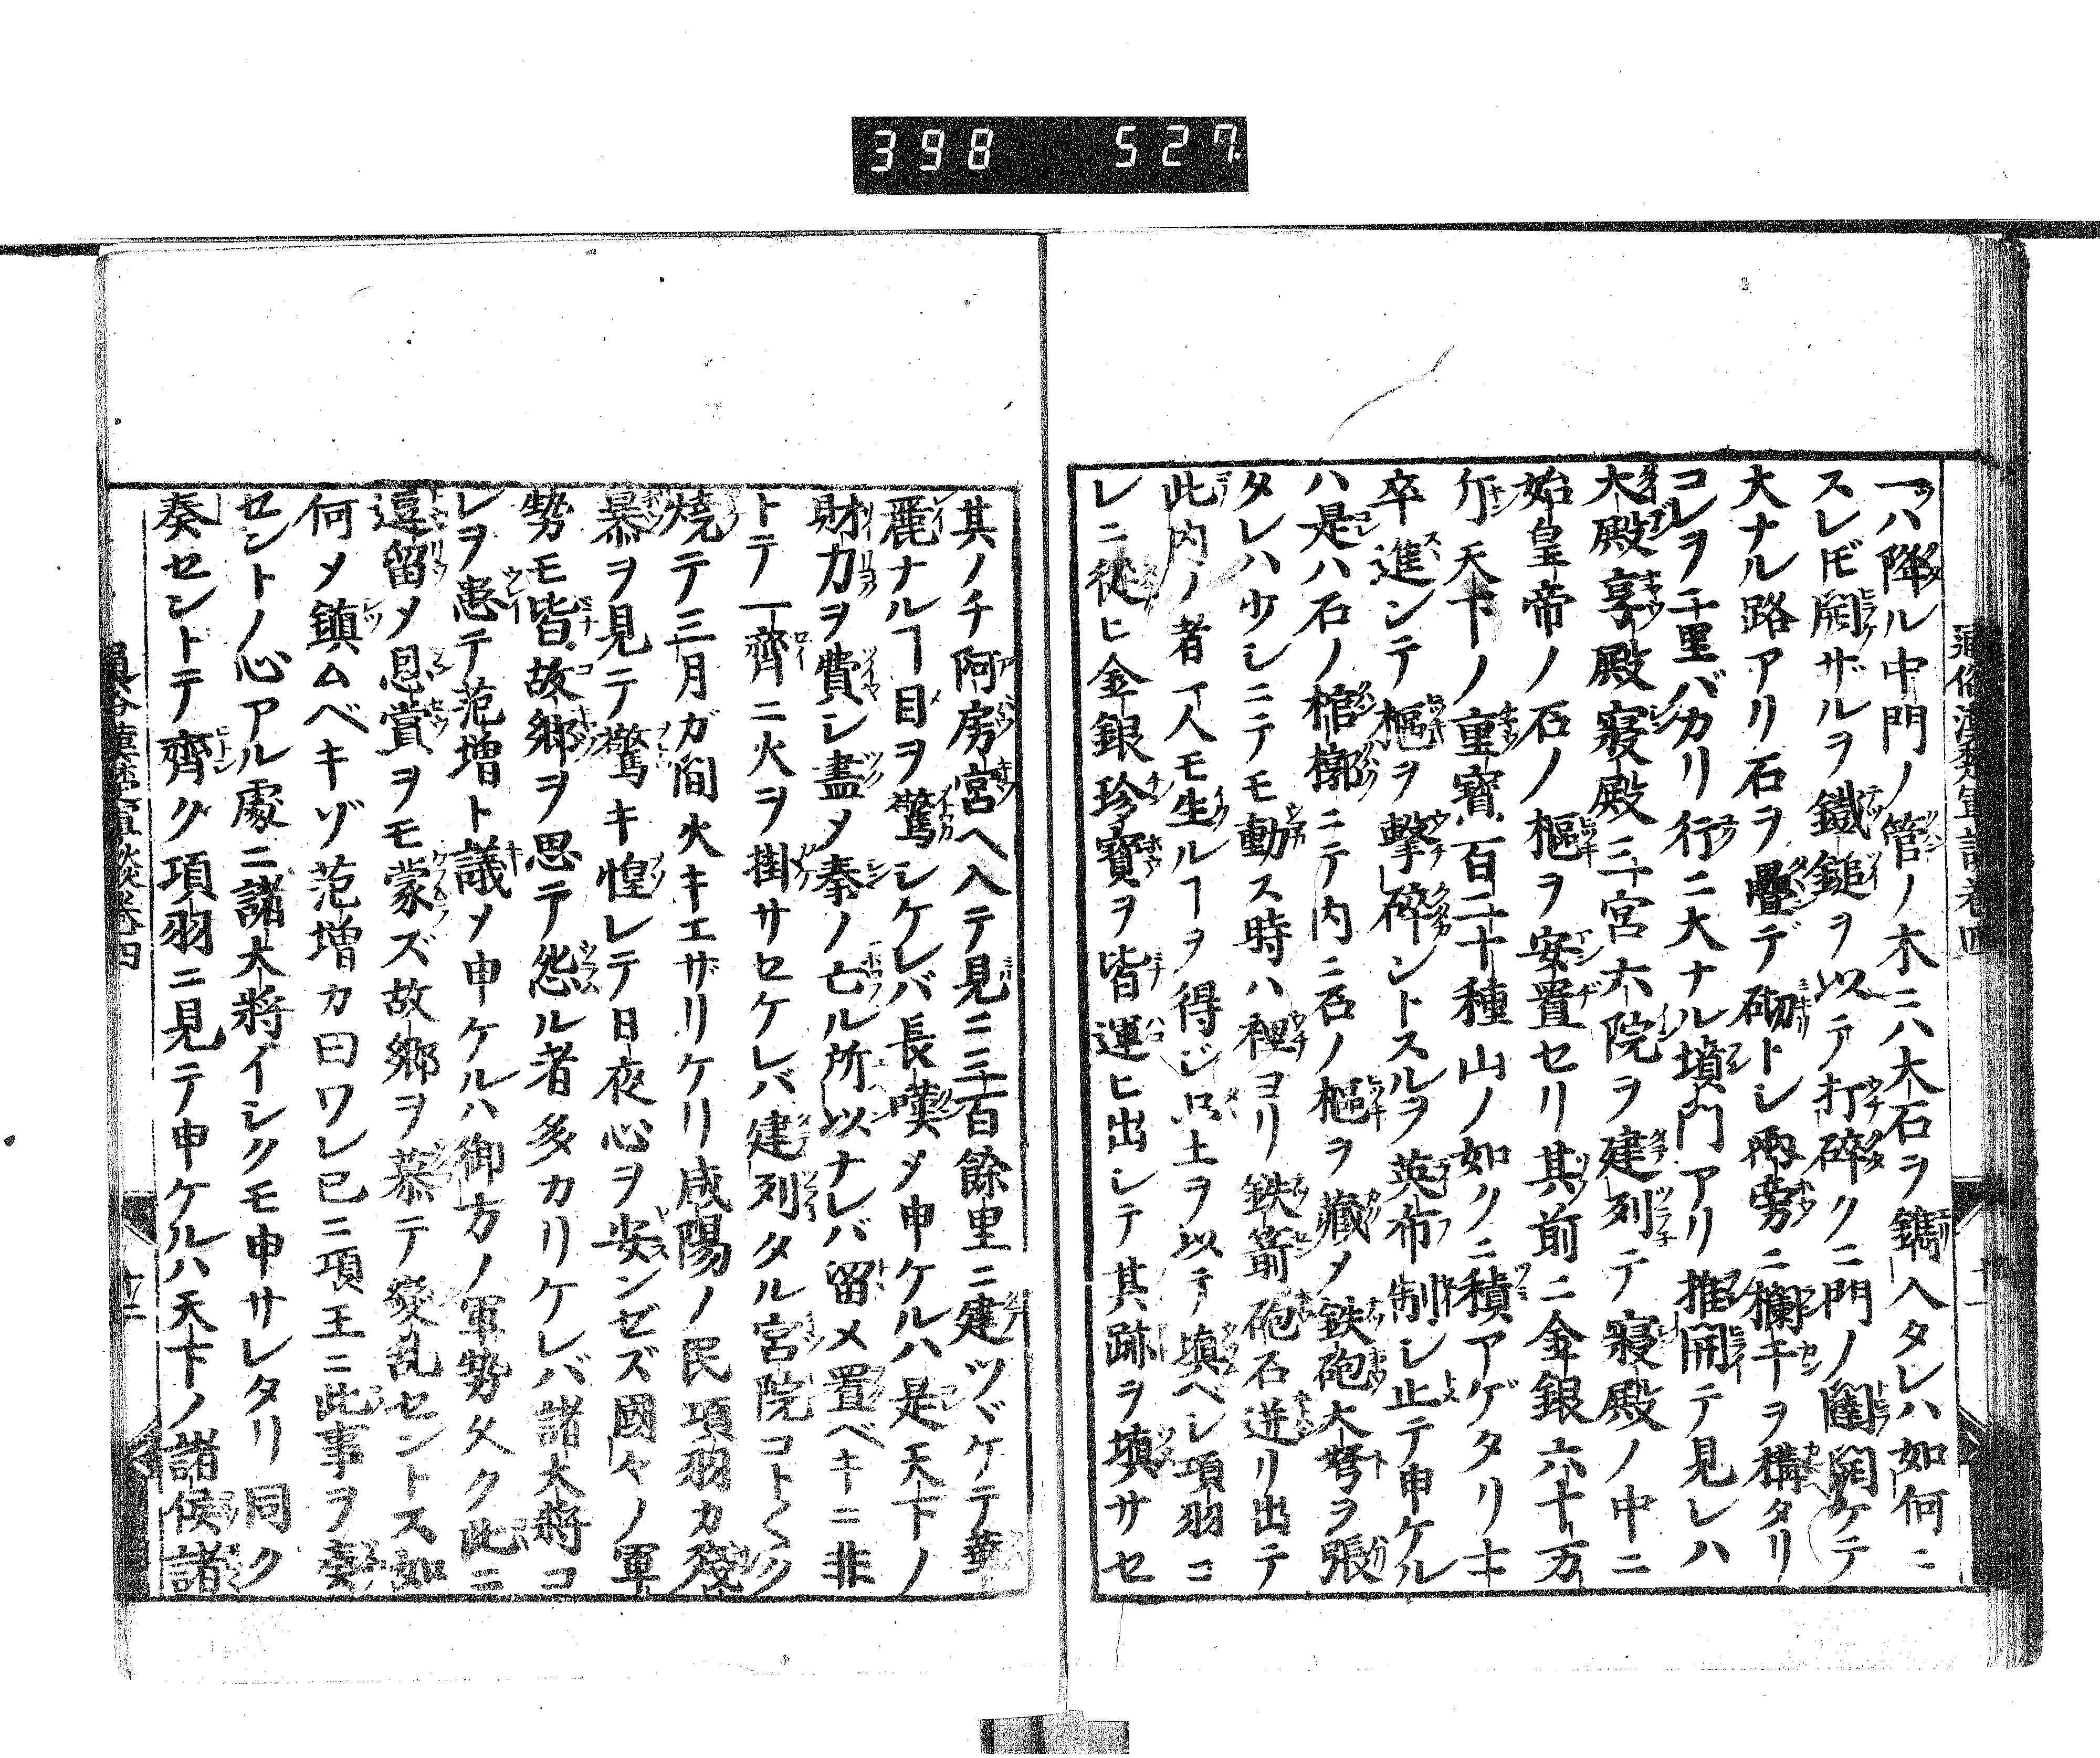 398 527.
通俗漢楚軍談卷四
一ツハ降ル中門ノ管ノ木ニハ大石ヲ鐫入タレハ如何ニ
スレ𪜈開ケザルヲ鐵鎚ヲ以テ打碎クニ門ノ闔開ケテ
大ナル路アリ石ヲ疊デ砌トシ兩旁ニ欄干ヲ構タリ
コレヲ二十里バカリ行ニ大ナル墳門アリ推開テ見レハ
大殿享殿寢殿三宮六院ヲ建列テ寢殿ノ中ニ
始皇帝ノ石ノ柩ヲ安置セリ其前ニ金銀六十万
斤天下ノ重寶百二十種山ノ如クニ積アゲタリ士
卒進ンテ柩ヲ擊碎ントスルヲ英布制シ止テ申ケル
ハ是ハ石ノ棺槨ニテ内ニ石ノ柩ヲ藏メ鉄砲大弩ヲ張
タレハ少シニテモ動ス時ハ裡ヨリ鉄箭砲石迸リ出テ
此内ノ者一人モ生ルヿヲ得ジ只土ヲ以テ塡ヘシ項羽コ
レニ從ヒ金銀珍寶ヲ皆運ヒ出シテ其跡ヲ塡サセ
其ノチ阿房宮ヘ入テ見ニ三百餘里ニ建ツヾケテ華
麗ナルヿ目ヲ驚シケレバ長嘆メ申ケルハ是天下ノ
財力ヲ費シ盡メ秦ノ亡ル所以ナレバ留メ置ベキニ非
トテ一齊ニ火ヲ掛サセケレバ建列タル宮院コト〱ク
燒テ三月ガ間火キエザリケリ咸陽ノ民項羽カ殘
暴ヲ見テ驚キ惶レテ日夜心ヲ安ンゼズ國々ノ軍
勢モ皆故郷ヲ思テ怨ル者多カリケレバ諸大將コ
レヲ患テ范增ト議メ申ケルハ御方ノ軍勢久ク此ニ
逗留メ恩賞ヲモ蒙ズ故郷ヲ慕テ變乱セントス如
何メ鎮ムベキゾ范增カ曰ワレ已ニ項王ニ此事ヲ奏
セントノ心アル處ニ諸大將イシクモ申サレタリ同ク
奏セントテ齊ク項羽ニ見テ申ケルハ天下ノ諸侯諸